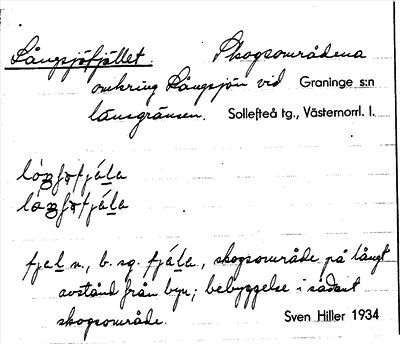 Långsjöfjället. Skogsområdena
omkring Långsjön vid Graninge s:n
länsgränsen. Sollefteå tg., Västernorrl. l.
fjäl n., b. sg. fjála, skogsområde på långt
avstånd från byn; bebyggelse i sådant
skogsområde. Sven Hiller 1934